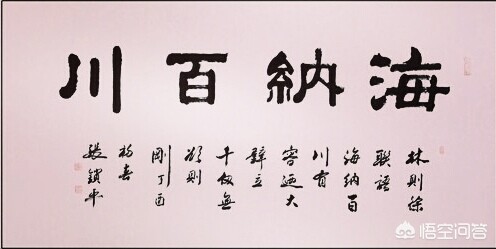 海納百川
林則徐
聯語
海納百
川有
容迺大
壁立
千仭無
欲則
剛丁酉
悟空问答